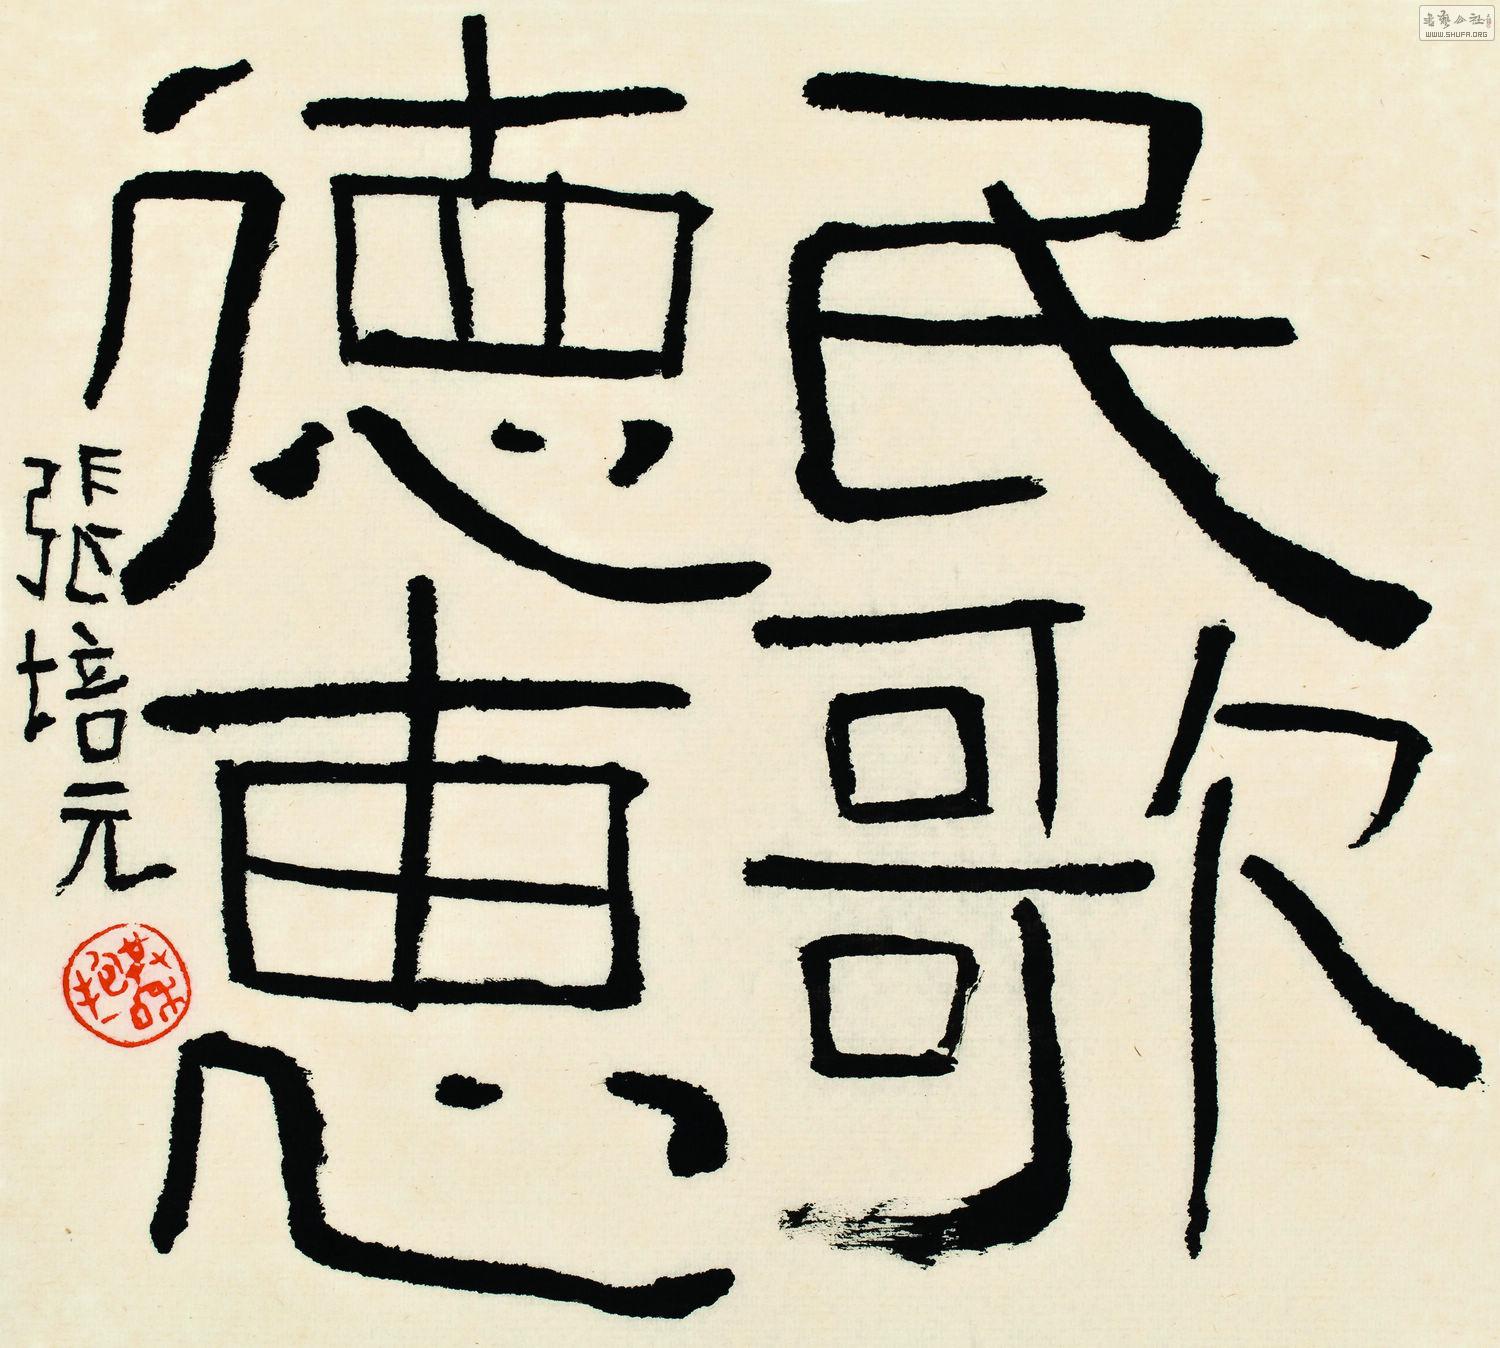 民歌
徳恵
張培元
書藝公社
WWW.SHUFA.ORG